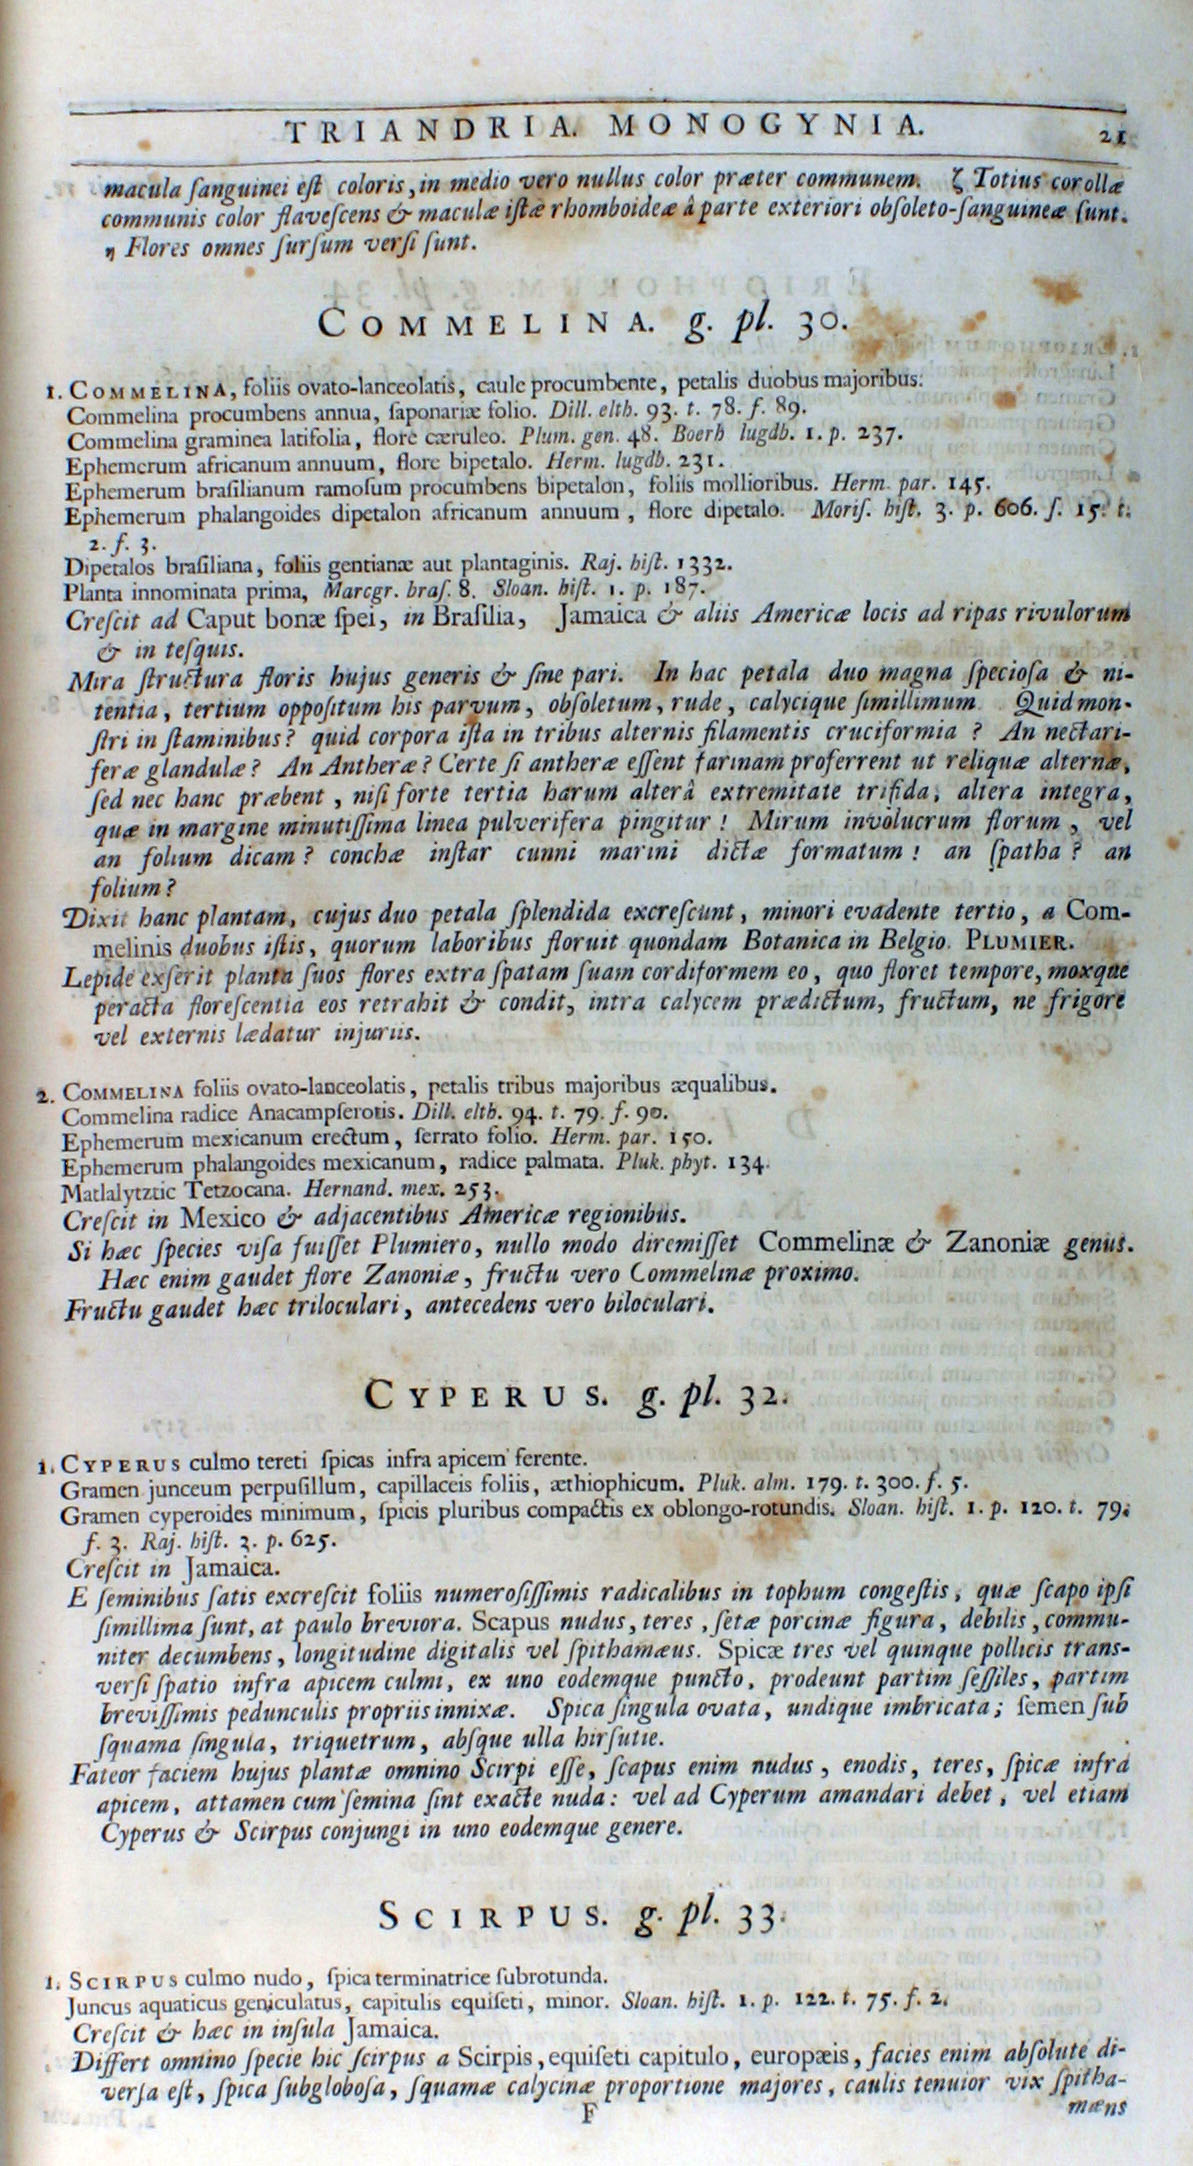 TRIANDRIA. MONOGYNIA. 21
macula ſanguinei eſt coloris, in medio vero nullus color præter communem. ζ Totius corollæ
communis color flaveſcens & maculæ iſtæ rhomboideæ â parte exteriori obſoleto-ſanguineæ ſunt.
η Flores omnes ſurſum verſi ſunt.
COMMELINA. g. pl. 30.
1. COMMELINA, foliis ovato-lanceolatis, caule procumbente, petalis duobus majoribus.
Commelina procumbens annua, ſaponariæ folio. Dill. elth. 93. t. 78. f. 89.
Commelina graminea latifolia, flore cæruleo. Plum. gen. 48. Boerh lugdb. 1. p. 237.
Ephemerum africanum annuum, flore bipetalo. Herm. lugdb. 231.
Ephemerum braſilianum ramoſum procumbens bipetalon, foliis mollioribus. Herm. par. 145.
Ephemerum phalangoides dipetalon africanum annuum, flore dipetalo. Moriſ. hiſt. 3. p. 606. ſ. 15. t.
2. f. 3.
Dipetalos braſiliana, foliis gentianæ aut plantaginis. Raj. hiſt. 1332.
Planta innominata prima, Marcgr. braſ. 8. Sloan. hiſt. 1. p. 187.
Creſcit ad Caput bonæ ſpei, in Braſilia, Jamaica & aliis Americæ locis ad ripas rivulorum
& in teſquis.
Mira ſtructura floris hujus generis & ſine pari. In hac petala duo magna ſpecioſa & ni-
tentia, tertium oppoſitum his parvum, obſoletum, rude, calycique ſimillimum. Quid mon-
ſtri in ſtaminibus? quid corpora iſta in tribus alternis filamentis cruciformia? An nectari-
feræ glandulæ? An Antheræ? Certe ſi antheræ eſſent farinam proferrent ut reliquæ alternæ,
ſed nec hanc præbent, niſi forte tertia harum alterâ extremitate trifida, altera integra,
quæ in margine minutiſſima linea pulveriſera pingitur! Mirum involucrum florum, vel
an folium dicam? conchæ inſtar cunni marini dictæ formatum! an ſpatha? an
folium?
Dixit hanc plantam, cujus duo petala ſplendida excreſcunt, minori evadente tertio, a Com-
melinis duobus iſtis, quorum laboribus floruit quondam Botanica in Belgio. PLUMIER.
Lepide exſerit planta ſuos flores extra ſpatam ſuam cordiformem eo, quo floret tempore, moxque
peracta floreſcentia eos retrahit & condit, intra calycem prædictum, fructum, ne frigore
vel externis lædatur injuriis.
2. COMMELINA foliis ovato-lanceolatis, petalis tribus majoribus æqualibus.
Commelina radice Anacampſerotis. Dill. elth. 94. t. 79. f. 90.
Ephemerum mexicanum erectum, ſerrato folio. Herm. par. 150.
Ephemerum phalangoides mexicanum, radice palmata. Pluk. phyt. 134.
Matlalytztic Tetzocana. Hernand. mex. 253.
Creſcit in Mexico & adjacentibus Americæ regionibus.
Si hæc ſpecies viſa fuiſſet Plumiero, nullo modo diremiſſet Commelinæ & Zanoniæ genus.
Hæc enim gaudet flore Zanoniæ, fructu vero Commelinæ proximo.
Fructu gaudet hæc triloculari, antecedens vero biloculari.
CYPERUS. g. pl. 32.
1. CYPERUS culmo tereti ſpicas infra apicem ferente.
Gramen junceum perpuſillum, capillaceis foliis, æthiophicum. Pluk. alm. 179. t. 300. f. 5.
Gramen cyperoides minimum, ſpicis pluribus compactis ex oblongo-rotundis. Sloan. hiſt. 1. p. 120. t. 79.
f. 3. Raj. hiſt. 3. p. 625.
Creſcit in Jamaica.
E ſeminibus ſatis excreſcit foliis numeroſiſſimis radicalibus in tophum congeſtis, quæ ſcapo ipſi
ſimillima ſunt, at paulo breviora. Scapus nudus, teres, ſetæ porcinæ figura, debilis, commu-
niter decumbens, longitudine digitalis vel ſpithamæus. Spicæ tres vel quinque pollicis trans-
verſi ſpatio infra apicem culmi, ex uno eodemque puncto, prodeunt partim ſeſſiles, partim
breviſſimis pedunculis propriis innixæ. Spica ſingula ovata, undique imbricata; ſemen ſub
ſquama ſingula, triquetrum, abſque ulla hirſutie.
Fateor faciem hujus plantæ omnino Scirpi eſſe, ſcapus enim nudus, enodis, teres, ſpicæ infra
apicem, attamen cum ſemina ſint exacte nuda: vel ad Cyperum amandari debet, vel etiam
Cyperus & Scirpus conjungi in uno eodemque genere.
SCIRPUS. g. pl. 33.
1. SCIRPUS culmo nudo, ſpica terminatrice ſubrotunda.
Juncus aquaticus geniculatus, capitulis equiſeti, minor. Sloan. hiſt. 1. p. 122. t. 75. f. 2.
Creſcit & hæc in inſula Jamaica.
Differt omnino ſpecie hic ſcirpus a Scirpis, equiſeti capitulo, europæis, facies enim abſolute di-
verſa eſt, ſpica ſubgloboſa, ſquamæ calycinæ proportione majores, caulis tenuior vix ſpitha-
F mæns